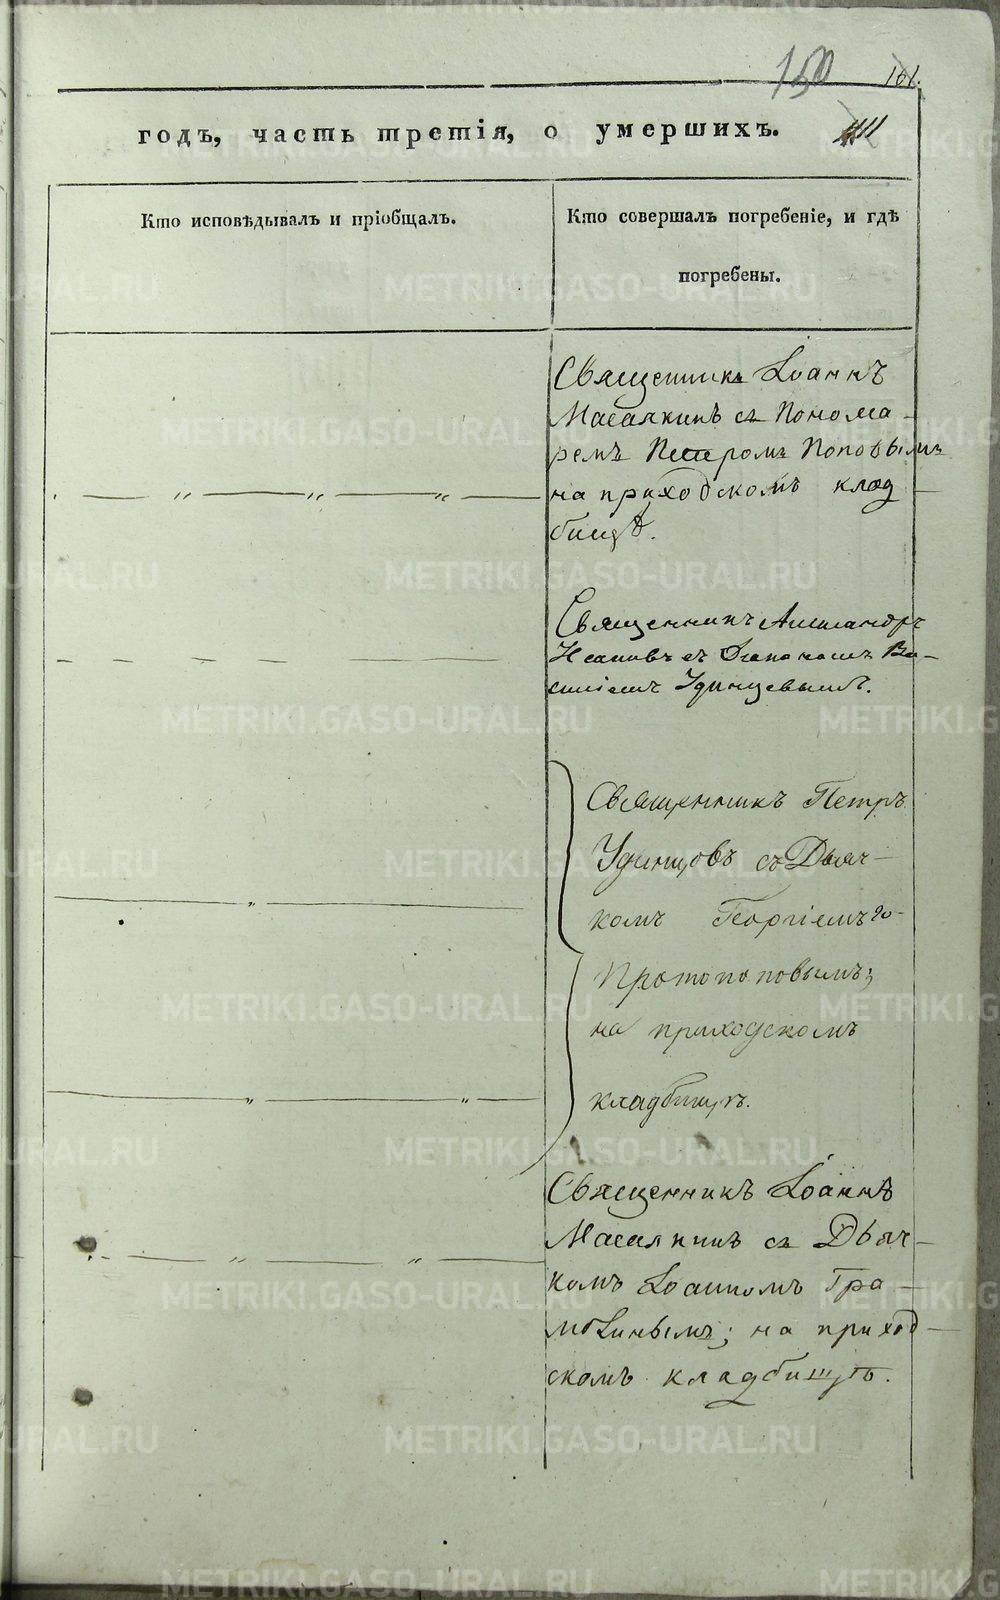 150
161.
годъ, часть третія, о умершихъ.
Кто исповѣдывалъ и пріобщалъ.
Кто совершалъ погребеніе, и гдѣ
погребены.
Священникъ Іоаннъ
Масалкинъ съ Понома-
ремъ Петромъ Поповымъ
на приходскомъ клад-
бищѣ.
Священникъ Александръ
съ Діакономъ Ва-
силіемъ Удинцевымъ.
Священникъ Петръ
Удинцовъ съ Дьяч-
комъ Георгіемъ
Протопоповымъ;
на приходскомъ
кладбищѣ.
Священникъ Іоаннъ
Масалкинъ съ Дьяч-
комъ Іоанномъ Гра-
молинымъ; на приход-
скомъ кладбищѣ.
METRIKI.GASO-URAL.RU